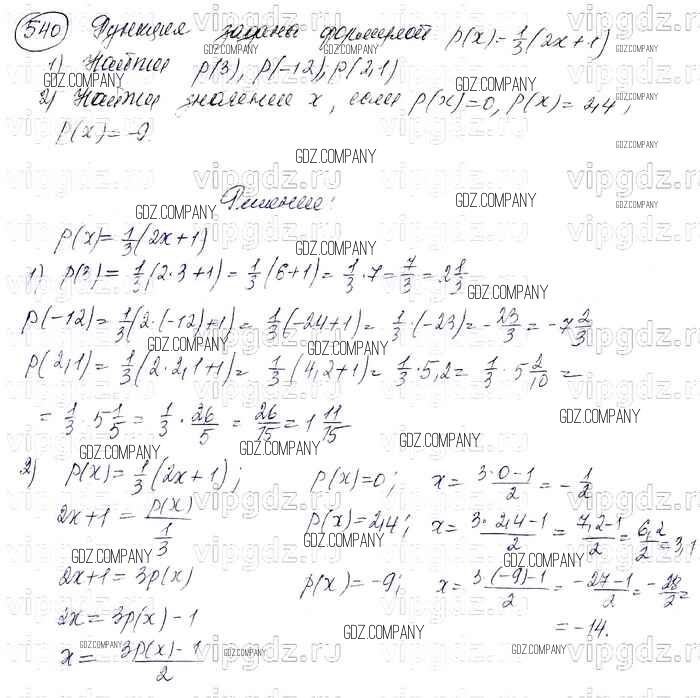 540 Функция задана формулой p(x)=1/3(2x+1)
1) Найти p(3), p(-12), p(2,1)
2) Найти значение x, если p(x)=0, p(x)=2,4,
p(x)=-9.
Решение:
p(x)=1/3(2x+1)
1) p(3)=1/3(2·3+1)=1/3(6+1)=1/3·7=7/3=2 1/3
p(-12)=1/3(2·(-12)+1)=1/3(-24+1)=1/3·(-23)=-23/3=-7 2/3
p(2,1)=1/3(2·2,1+1)=1/3(4,2+1)=1/3·5,2=1/3·5 2/10=
=1/3·5 1/5=1/3·26/5=26/15=1 11/15
2) p(x)=1/3(2x+1); p(x)=0; x=(3·0-1)/2=-1/2
2x+1=p(x)/(1/3) p(x)=2,4; x=(3·2,4-1)/2=(7,2-1)/2=6,2/2=3,1
2x+1=3p(x) p(x)=-9; x=(3·(-9)-1)/2=(-27-1)/2=-28/2=
2x=3p(x)-1 =-14.
x=(3p(x)-1)/2
GDZ.COMPANY
vipgdz.ru